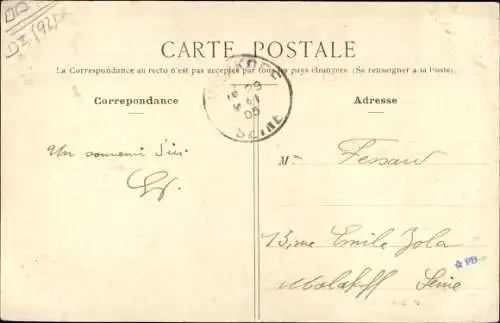 CARTE POSTALE
La Correspondance au recto n'est pas acceptée par tous les pays étrangers (Se renseigner à la Poste)
Correpondance
Adresse
29
05
SEINE
Un souvenir d'ici
M
Fessard
13 rue Emile Zola
Malakoff Seine
PB